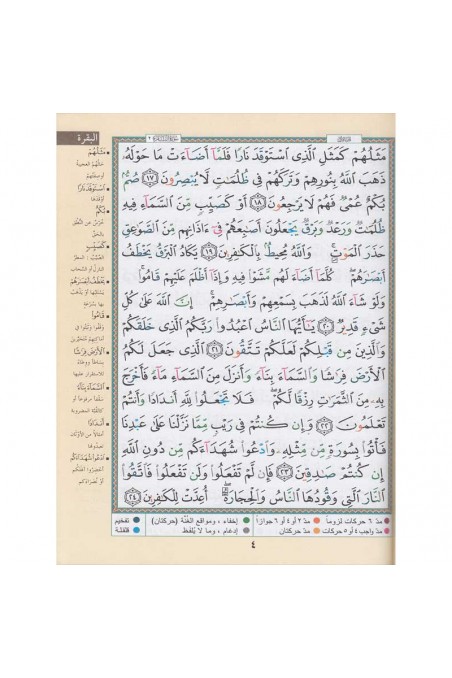 البقرة
مَثَلُهُمْ كَمَثَلِ ٱلَّذِى ٱسْتَوْقَدَ نَارًا فَلَمَّآ أَضَآءَتْ مَا حَوْلَهُۥ
ذَهَبَ ٱللَّهُ بِنُورِهِمْ وَتَرَكَهُمْ فِى ظُلُمَٰتٍ لَّا يُبْصِرُونَ ١٧ صُمٌّۢ
بُكْمٌ عُمْىٌ فَهُمْ لَا يَرْجِعُونَ ١٨ أَوْ كَصَيِّبٍ مِّنَ ٱلسَّمَآءِ فِيهِ
ظُلُمَٰتٌ وَرَعْدٌ وَبَرْقٌ يَجْعَلُونَ أَصَٰبِعَهُمْ فِىٓ ءَاذَانِهِم مِّنَ ٱلصَّوَٰعِقِ
حَذَرَ ٱلْمَوْتِ ۚ وَٱللَّهُ مُحِيطٌۢ بِٱلْكَٰفِرِينَ ١٩ يَكَادُ ٱلْبَرْقُ يَخْطَفُ
أَبْصَٰرَهُمْ ۖ كُلَّمَآ أَضَآءَ لَهُم مَّشَوْا۟ فِيهِ وَإِذَآ أَظْلَمَ عَلَيْهِمْ قَامُوا۟ ۚ
وَلَوْ شَآءَ ٱللَّهُ لَذَهَبَ بِسَمْعِهِمْ وَأَبْصَٰرِهِمْ ۚ إِنَّ ٱللَّهَ عَلَىٰ كُلِّ
شَىْءٍ قَدِيرٌ ٢٠ يَٰٓأَيُّهَا ٱلنَّاسُ ٱعْبُدُوا۟ رَبَّكُمُ ٱلَّذِى خَلَقَكُمْ
وَٱلَّذِينَ مِن قَبْلِكُمْ لَعَلَّكُمْ تَتَّقُونَ ٢١ ٱلَّذِى جَعَلَ لَكُمُ
ٱلْأَرْضَ فِرَٰشًا وَٱلسَّمَآءَ بِنَآءً وَأَنزَلَ مِنَ ٱلسَّمَآءِ مَآءً فَأَخْرَجَ
بِهِۦ مِنَ ٱلثَّمَرَٰتِ رِزْقًا لَّكُمْ ۖ فَلَا تَجْعَلُوا۟ لِلَّهِ أَندَادًا وَأَنتُمْ
تَعْلَمُونَ ٢٢ وَإِن كُنتُمْ فِى رَيْبٍ مِّمَّا نَزَّلْنَا عَلَىٰ عَبْدِنَا
فَأْتُوا۟ بِسُورَةٍ مِّن مِّثْلِهِۦ وَٱدْعُوا۟ شُهَدَآءَكُم مِّن دُونِ ٱللَّهِ
إِن كُنتُمْ صَٰدِقِينَ ٢٣ فَإِن لَّمْ تَفْعَلُوا۟ وَلَن تَفْعَلُوا۟ فَٱتَّقُوا۟
ٱلنَّارَ ٱلَّتِى وَقُودُهَا ٱلنَّاسُ وَٱلْحِجَارَةُ ۖ أُعِدَّتْ لِلْكَٰفِرِينَ ٢٤
مَثَلُهُمْ
حالُهُم العجيبة
ٱسْتَوْقَدَ نَارًا
أوْقَدَها
بُكْمٌ
كَصَيِّبٍ
يَخْطَفُ أَبْصَٰرَهُمْ
قَامُوا۟
ٱلْأَرْضَ فِرَٰشًا
ٱلسَّمَآءَ بِنَآءً
أَندَادًا
ٱدْعُوا۟ شُهَدَآءَكُم
مدّ ٦ حركات لزوماً مدّ ٢ أو ٤ أو ٦ جوازاً إخفاء، ومواقع الغُنَّة (حركتان) تفخيم
مدّ واجب ٤ أو ٥ حركات مدّ حركتان إدغام، وما لا يُلفَظ قلقلة
٤